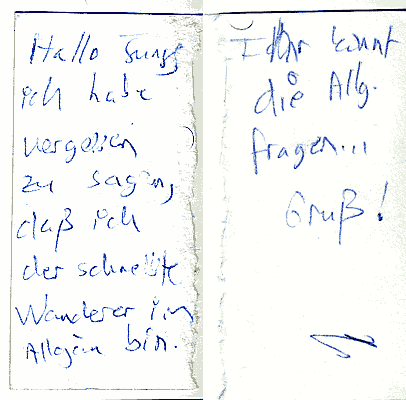 Hallo Jungs
ich habe
vergessen
zu sagen,
daß ich
der schnellste
Wanderer im
Allgäu bin.
Ihr könnt
die Allg.
fragen...
Gruß!